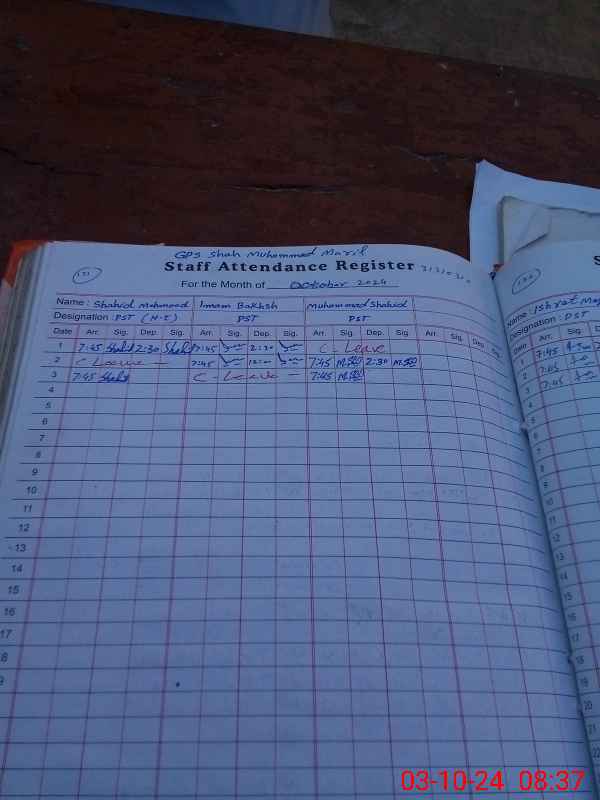 GPS Shah Muhammad Maril
131
Staff Attendance Register 3/3/0 3/0
For the Month of October 2024
Name : Shahid Mehmood Imam Bakhsh Muhammad Shahid
Designation : PST (H-T) PST PST
Date Arr. Sig. Dep. Sig. Arr. Sig. Dep. Sig. Arr. Sig. Dep. Sig. Arr. Sig. Dep. Sig.
1 7:45 Shahid 2:30 Shahid 7:45 2:30 C - Leave
2 C - Leave 7:45 12:00 7:45 2:30
3 7:45 Shahid C - Leave 7:45
4
5
6
7
8
9
10
11
12
13
14
15
16
17
8
9
132
Name : Ishrat
Designation : PST
Date Arr. Sig.
7:45
2 7:45
3 7:45
4
5
6
7
8
9
10
11
12
13
14
15
16
17
18
19
20
21
22
03-10-24 08:37